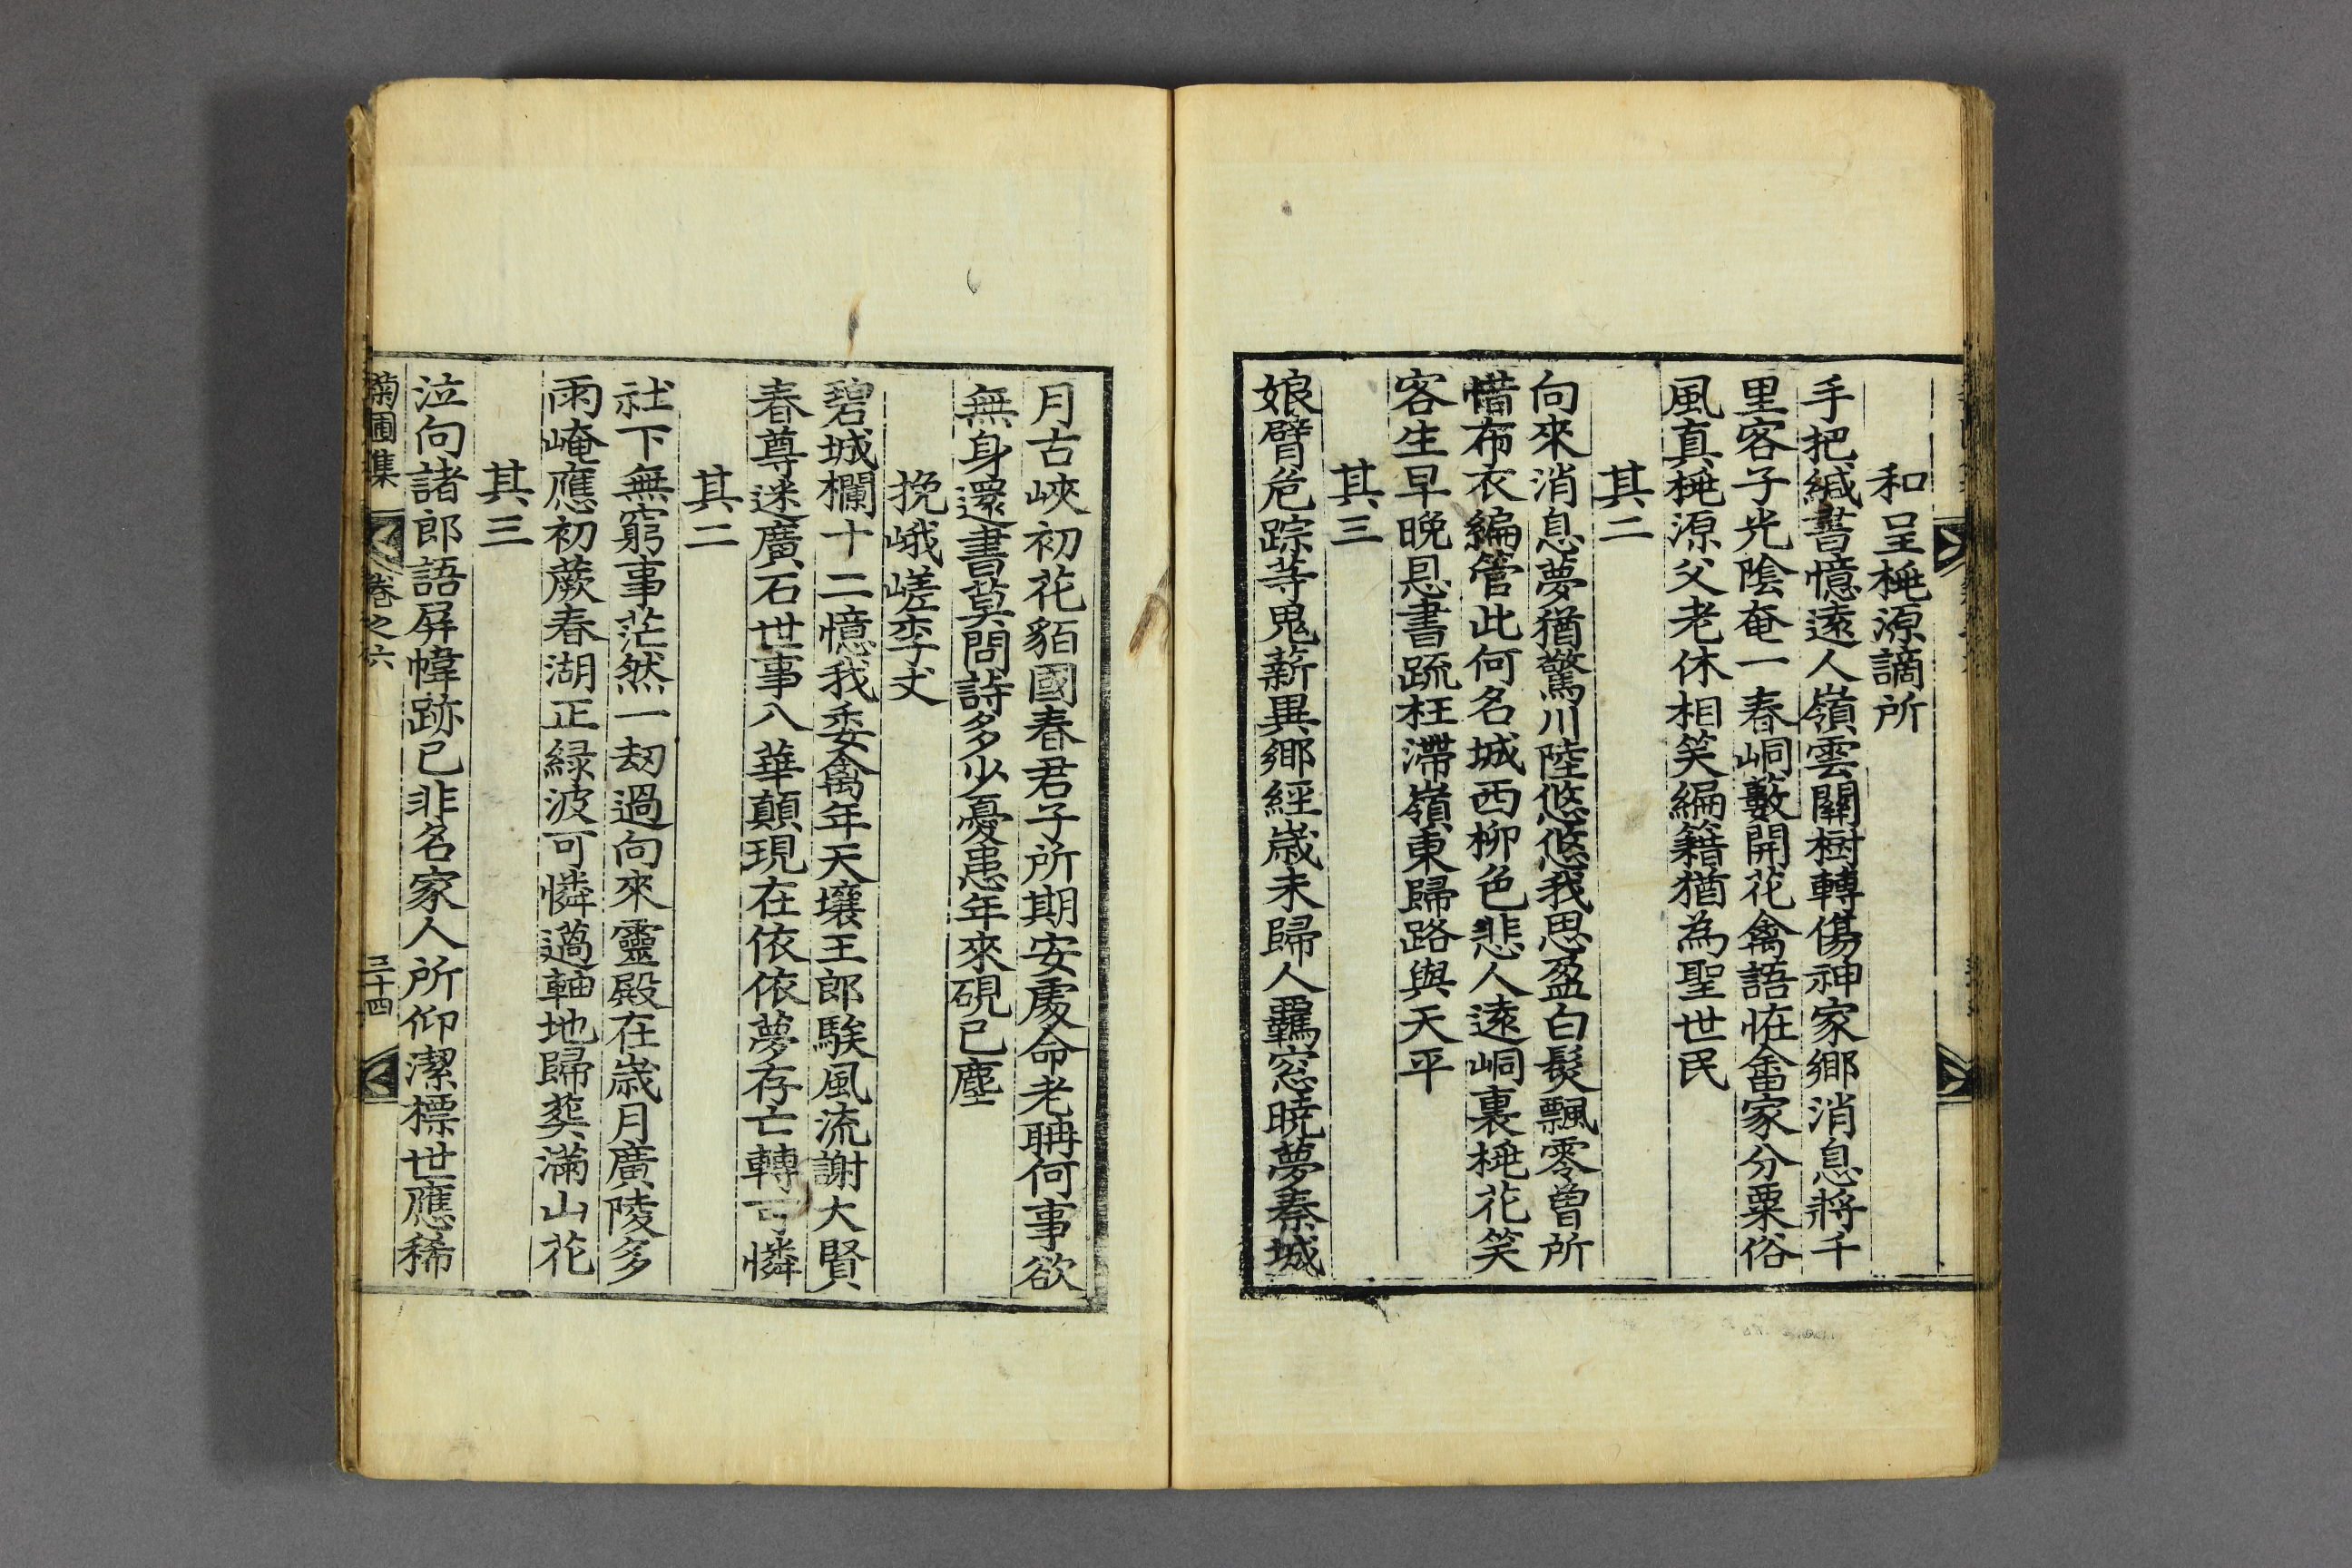 和呈桃源謫所
手把緘書憶遠人嶺雲關樹轉傷神家鄉消息將千
里客子光陰奄一春峒藪開花禽語恠畬家分粟俗
風真桃源父老休相笑編籍猶為聖世民
其二
向來消息夢猶驚川陸悠悠我思盈白髮飄零曾所
惜布衣編管此何名城西柳色悲人遠峒裏桃花笑
客生早晚恩書疏枉滯嶺東歸路與天平
其三
娘臂危踪等鬼薪異鄉經歲未歸人羈窓曉夢秦城
月古峽初花貊國春君子所期安處命老聃何事欲
無身還書莫問詩多少憂患年來硯已塵
挽峨嵯李丈
碧城欄十二憶我委禽年天壤王郎騃風流謝大賢
春尊迷廣石世事八華顛現在依依夢存亡轉可憐
社下無窮事茫然一刼過向來靈殿在歲月廣陵多
其二
雨崦應初蕨春湖正綠波可憐薖軸地歸葬滿山花
其三
泣向諸郎語屏幃跡已非名家人所仰潔標世應稀
菊圃集 卷之六 三十四